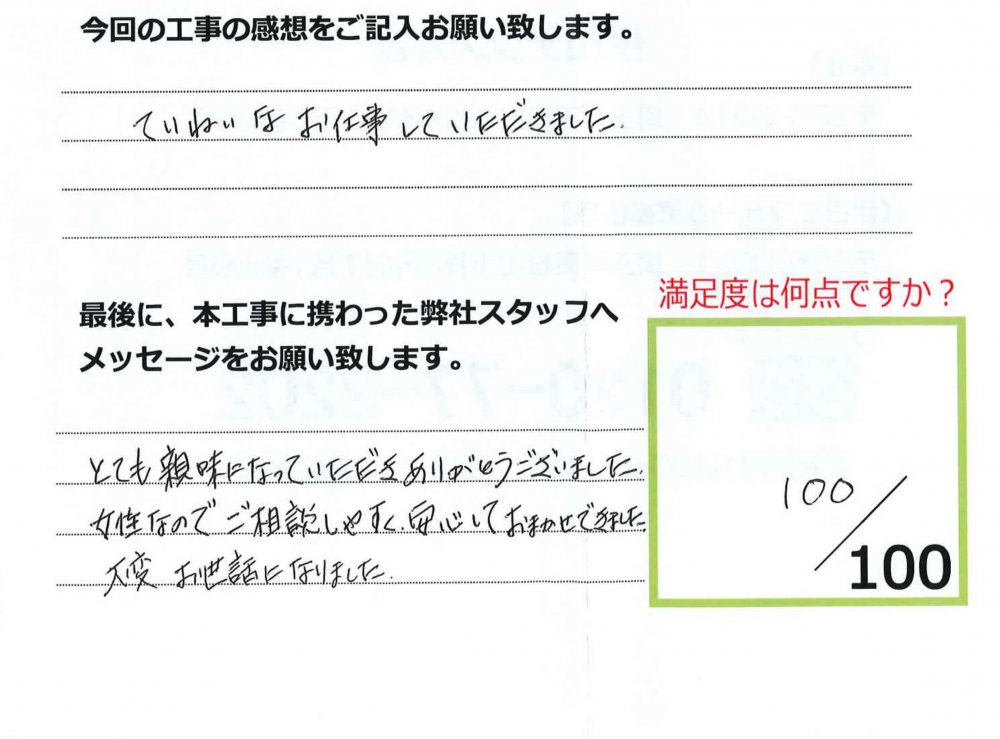 今回の工事の感想をご記入お願い致します。
ていねいな お仕事していただきました.
満足度は何点ですか?
最後に、本工事に携わった弊社スタッフへ
メッセージをお願い致します。
とても親味になっていただきありがとうございました.
女性なのでご相談しやすく、安心しておまかせできました
大変 お世話になりました.
100/100